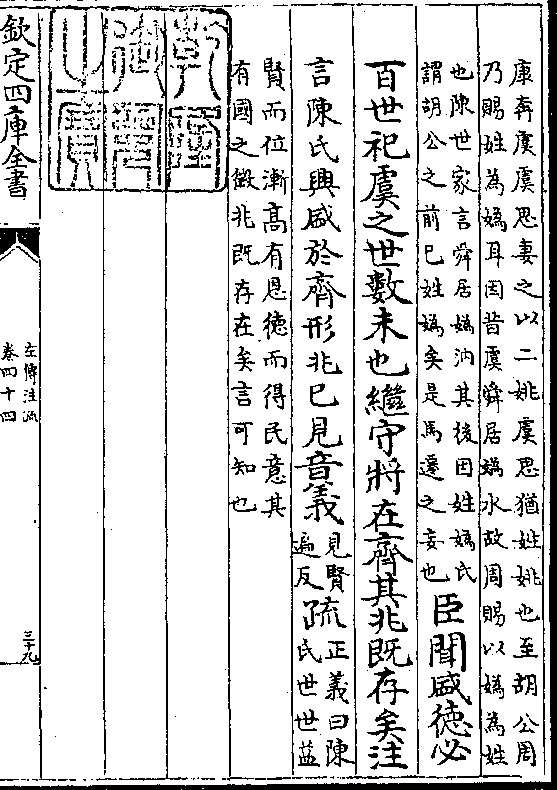 康奔虞虞思妻之以二姚虞思猶姓姚也至胡公周
乃賜姓為媯耳因昔虞舜居媯水故周賜以媯為姓
也陳世家言舜居媯汭其後因姓媯氏
謂胡公之前已姓媯矣是馬遷之妄也
臣聞盛徳必
百世祀虞之世數未也繼守將在齊其兆既存矣注
言陳氏興盛於齊形兆已見音義
見賢
遍反
疏
正義曰陳
氏世世益
賢而位漸高有恩徳而得民意其
有國之徵兆既存在矣言可知也
乾隆
御覽
之寶
欽定四庫全書
左傳注疏
卷四十四
三十九